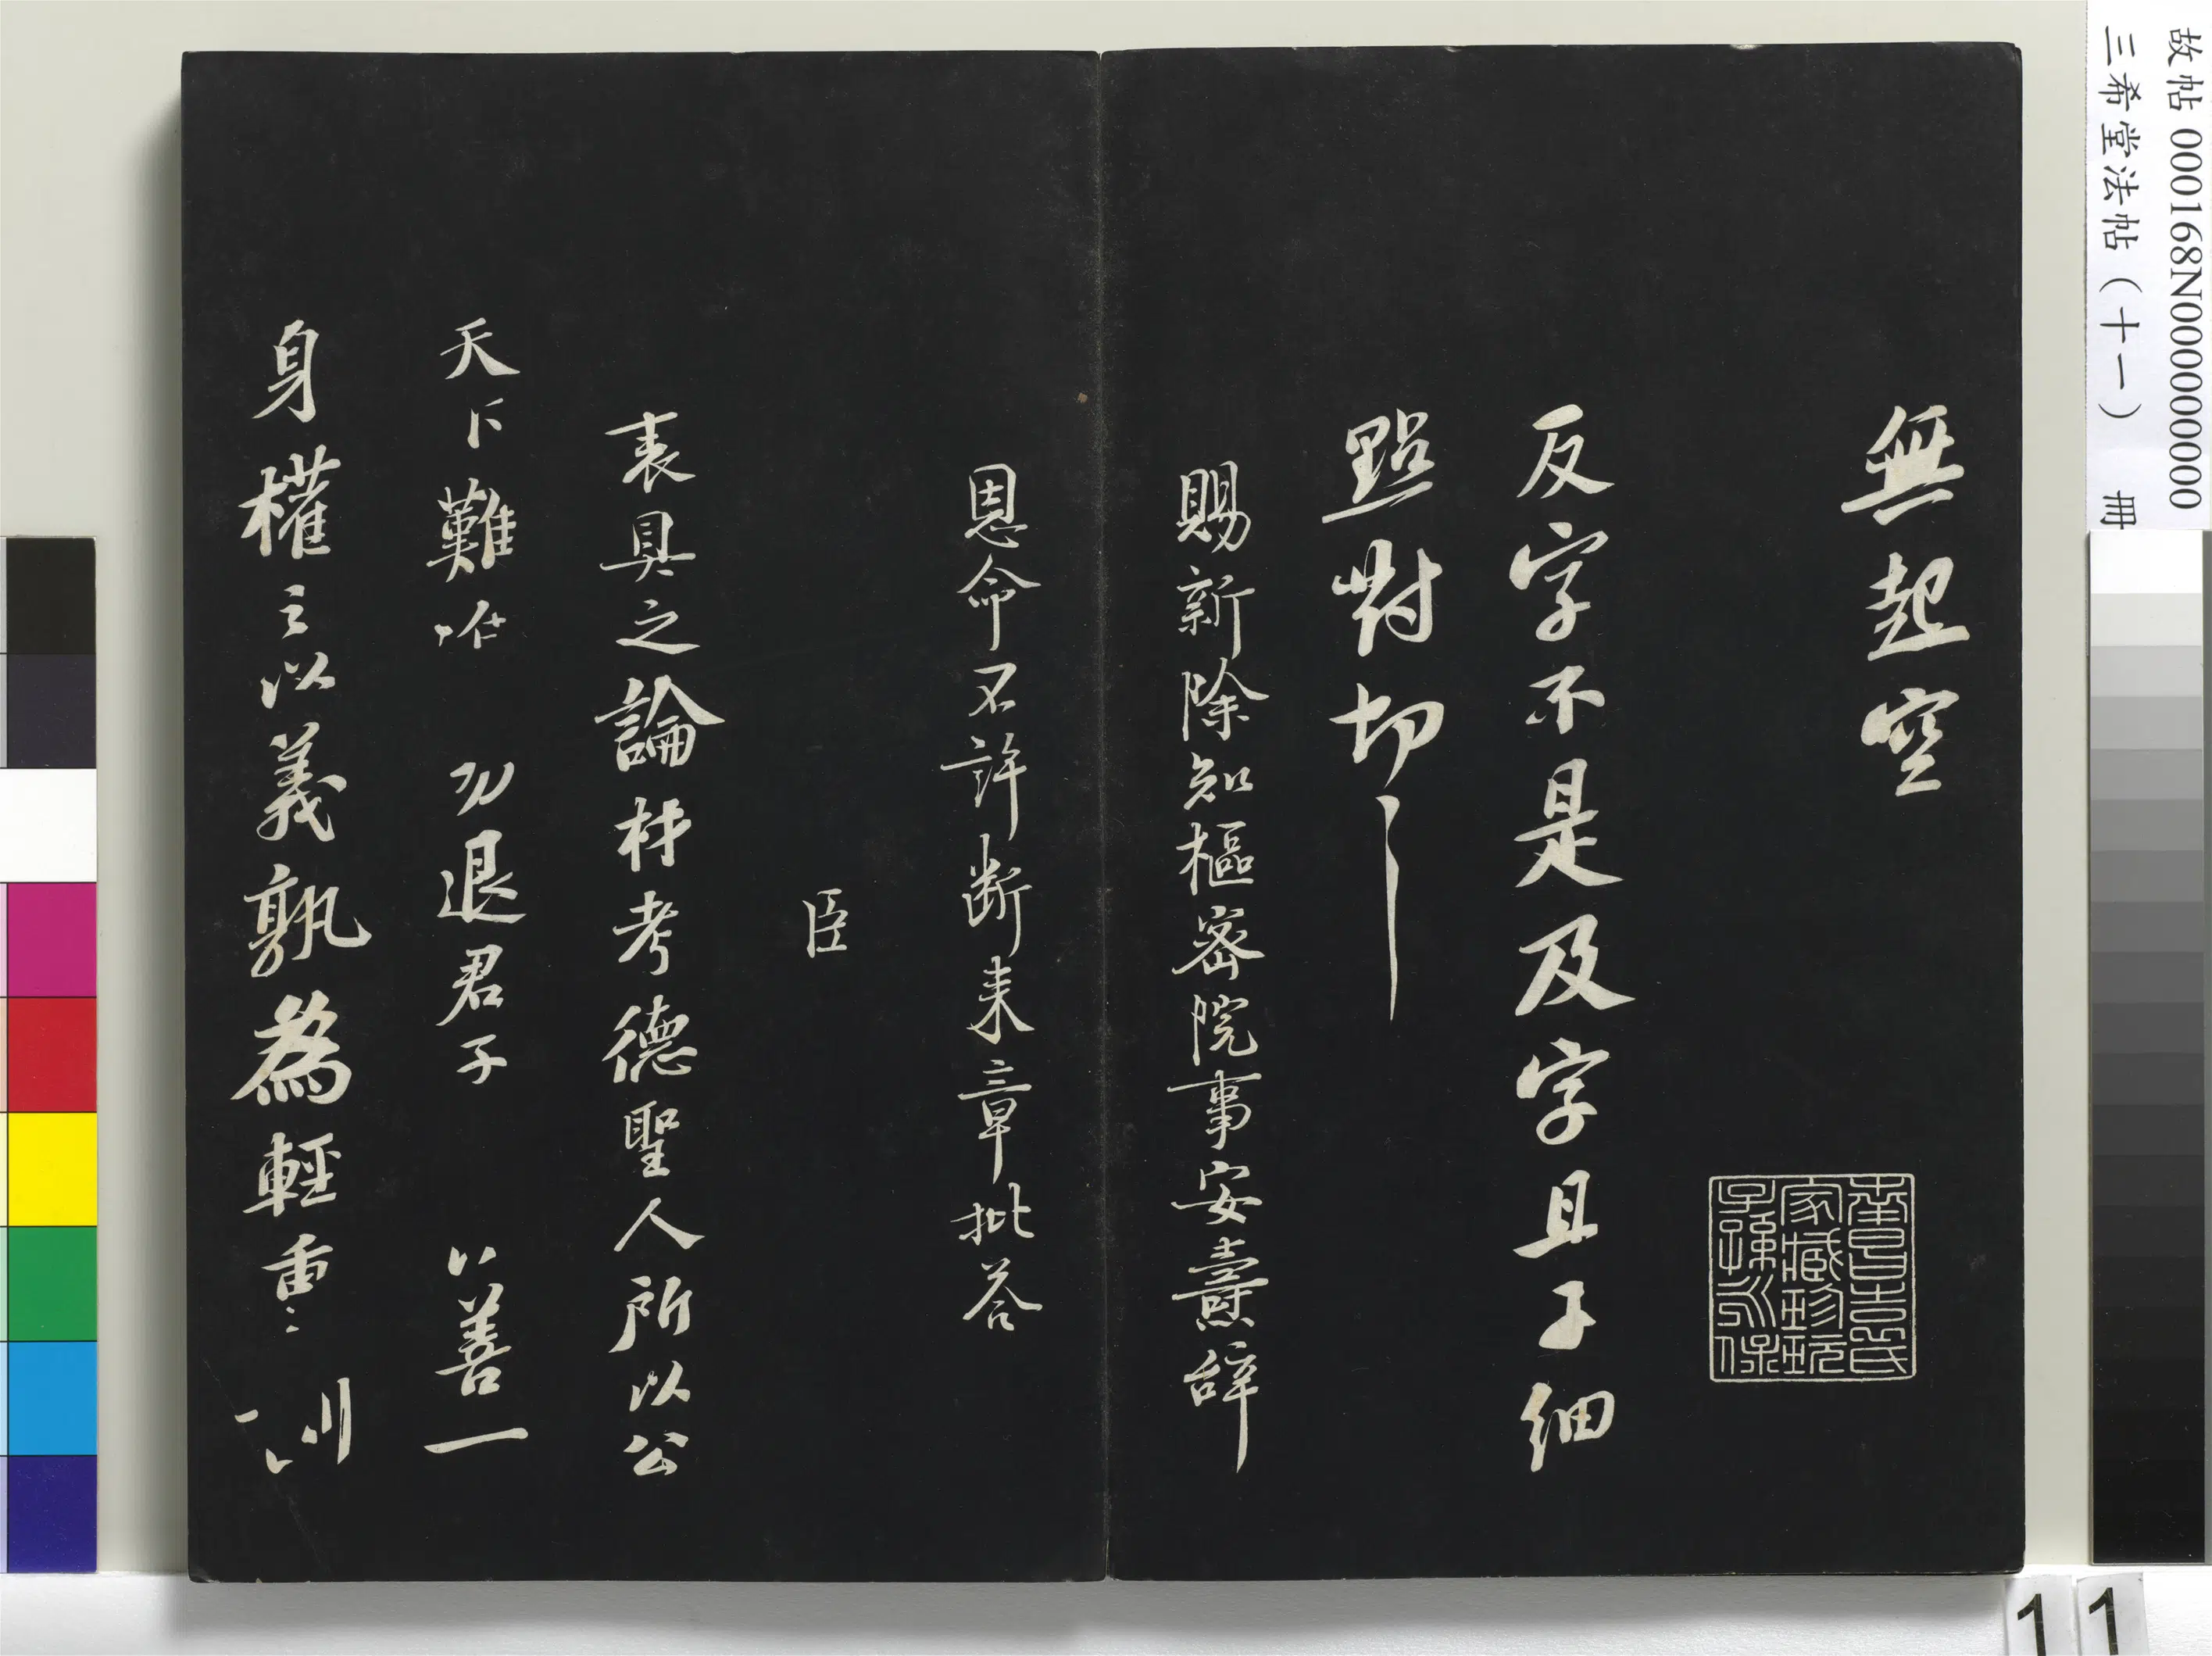 無起空
反字不是及字且子細
點對切〻
賜新除知樞密院事安燾辭
恩命不許斷来章批荅
臣
表具之論材考德聖人所以公
天下難
勿退君子
以善一
身權之以義孰為輕重
家藏珍玩
子孫永保
故帖 000168N000000000
三希堂法帖（十一） 冊
11